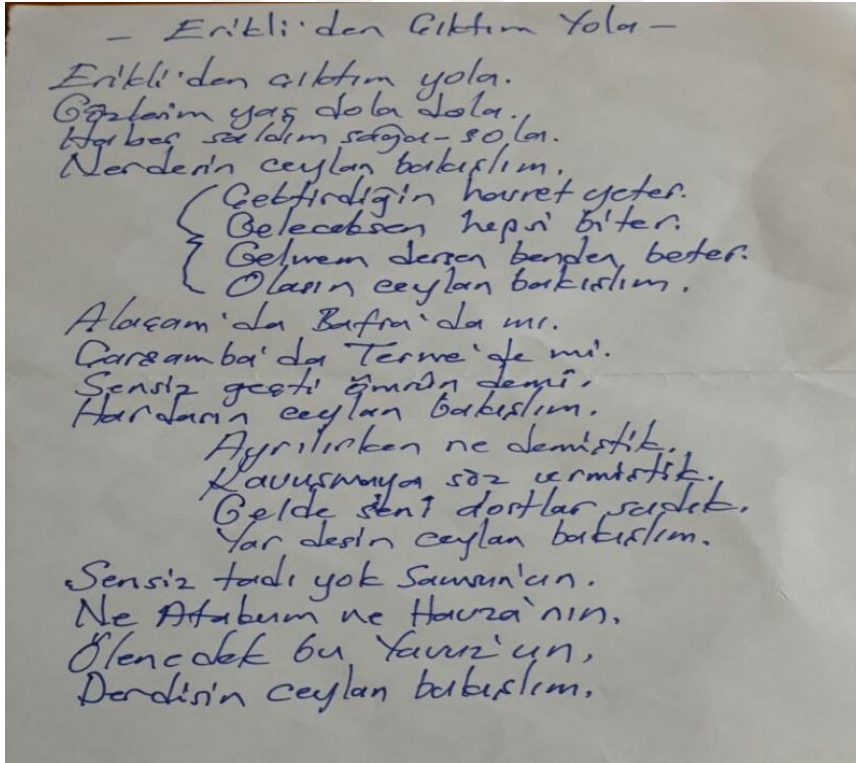 - Erikli'den Çıktım Yola -
Erikli'den çıktım yola.
Gözlerim yaş dola dola.
Haber saldım sağa-sola.
Nerdesin ceylan bakışlım.
Çektirdiğin hasret yeter.
Geleceksen hepsi biter.
Gelmem dersen benden beter.
Olasın ceylan bakışlım.
Alaçam'da Bafra'da mı.
Çarşamba'da Terme'de mi.
Sensiz geçti ömrün demi.
Hardasın ceylan bakışlım.
Ayrılırken ne demiştik.
Kavuşmaya söz vermiştik.
Gelde seni dostlar sadık.
Yar desin ceylan bakışlım.
Sensiz tadı yok Samsun'un.
Ne Atakum ne Havza'nın.
Ölenedek bu Yavuz'un,
Derdisin ceylan bakışlım.